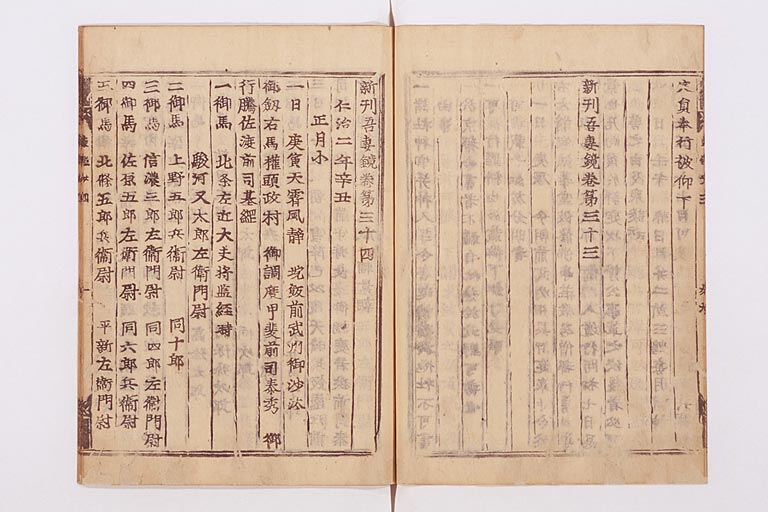 定員奉行被仰下
新刊吾妻鏡卷第三十三
新刊吾妻鏡卷第三十四
仁治二年辛丑
正月小
一日 庚寅天霽風静 垸飯前武州御沙汰
御劔右馬權頭政村 御調度甲斐前司泰秀 御
行騰佐渡前司基綱
一御馬 北条左近大夫将監経時
駿河又太郎左衛門尉
二御馬 上野五郎兵衛尉 同十郎
三御馬 信濃三郎左衛門尉 同四郎左衛門尉
四御馬 佐原五郎左衛門尉 同六郎兵衛尉
五御馬 北條五郎兵衛尉 平新左衛門尉